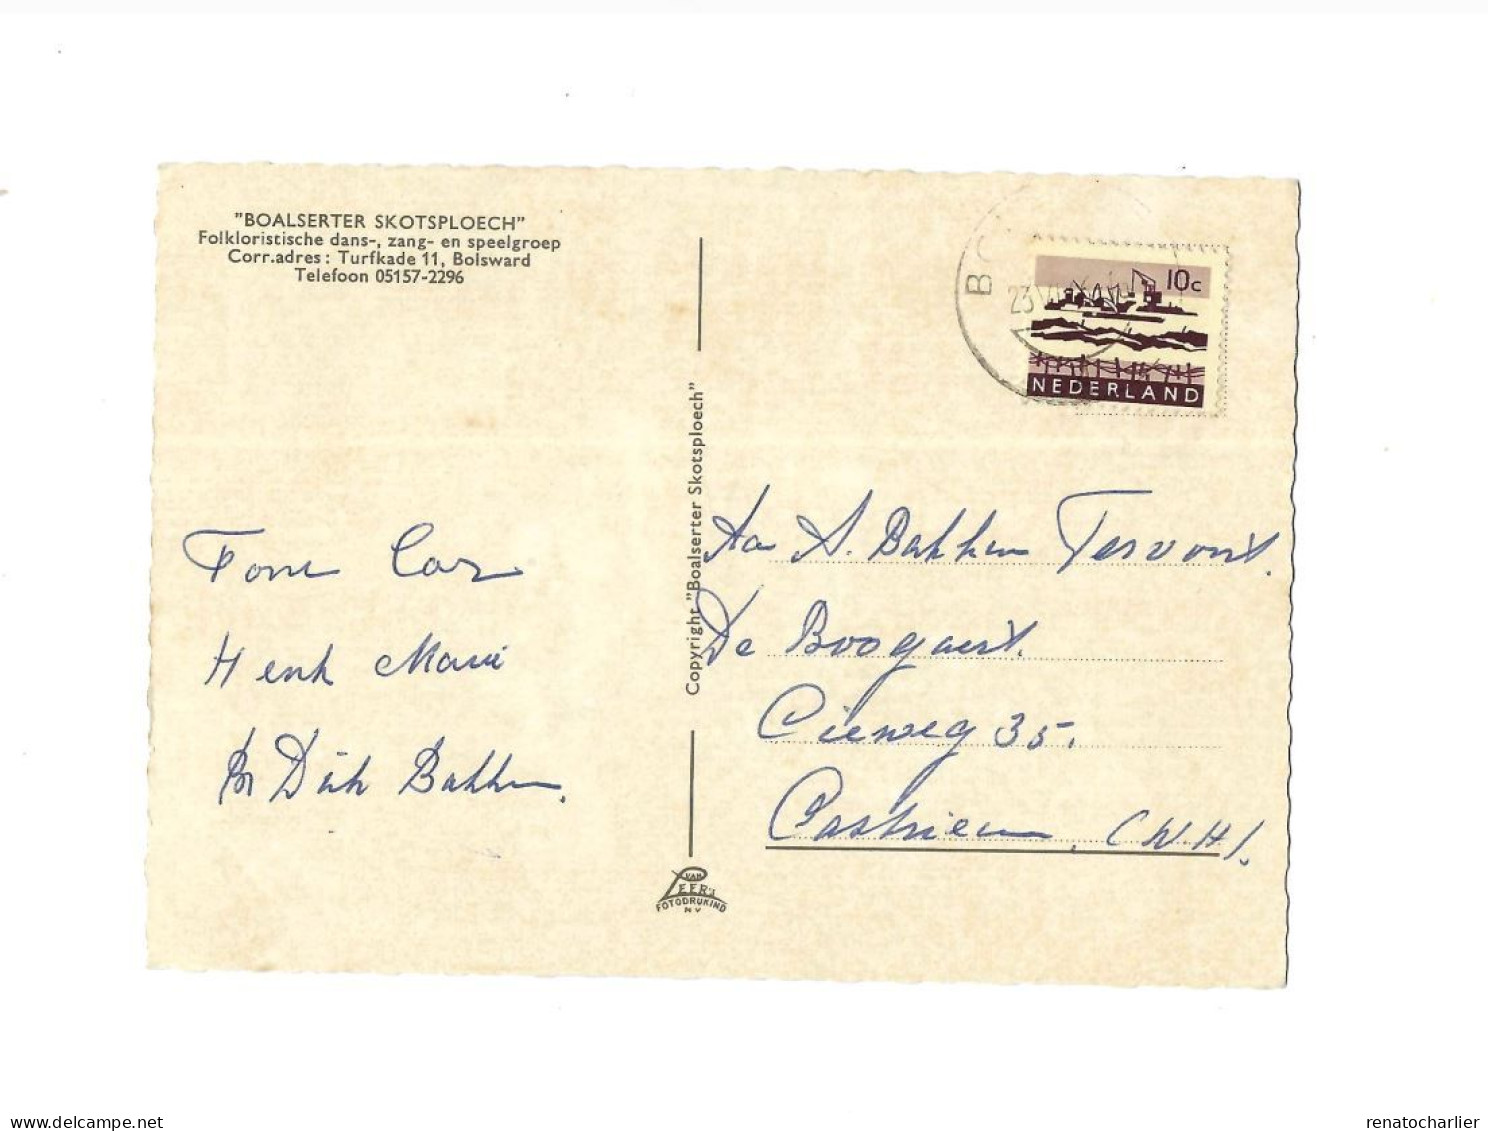 "BOALSERTER SKOTSPLOECH"
Folkloristische dans-, zang- en speelgroep
Corr.adres: Turfkade 11, Bolsward
Telefoon 05157-2296
10c
NEDERLAND
23
Copyright "Boalserter Skotsploech"
Tom Cor
Henk Marie
en Dirk Bakker.
A. Bakker
De Boogaert.
35.
Castricum, (N.H).
VAN
LEER'S
FOTODRUKIND
NV
renatocharlier